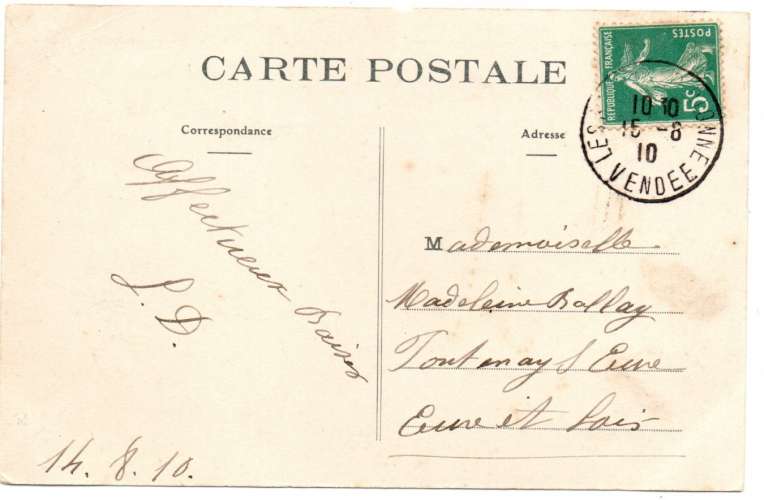 CARTE POSTALE
Correspondance
Adresse
REPUBLIQUE FRANÇAISE
POSTES
5c
10 10
15 - 8
10
LES ONNE
VENDEE
Affectueux Baisers
J. D.
14. 8. 10.
Mademoiselle
Madeleine Ballay
Fontenay S Eure
Eure et Loir